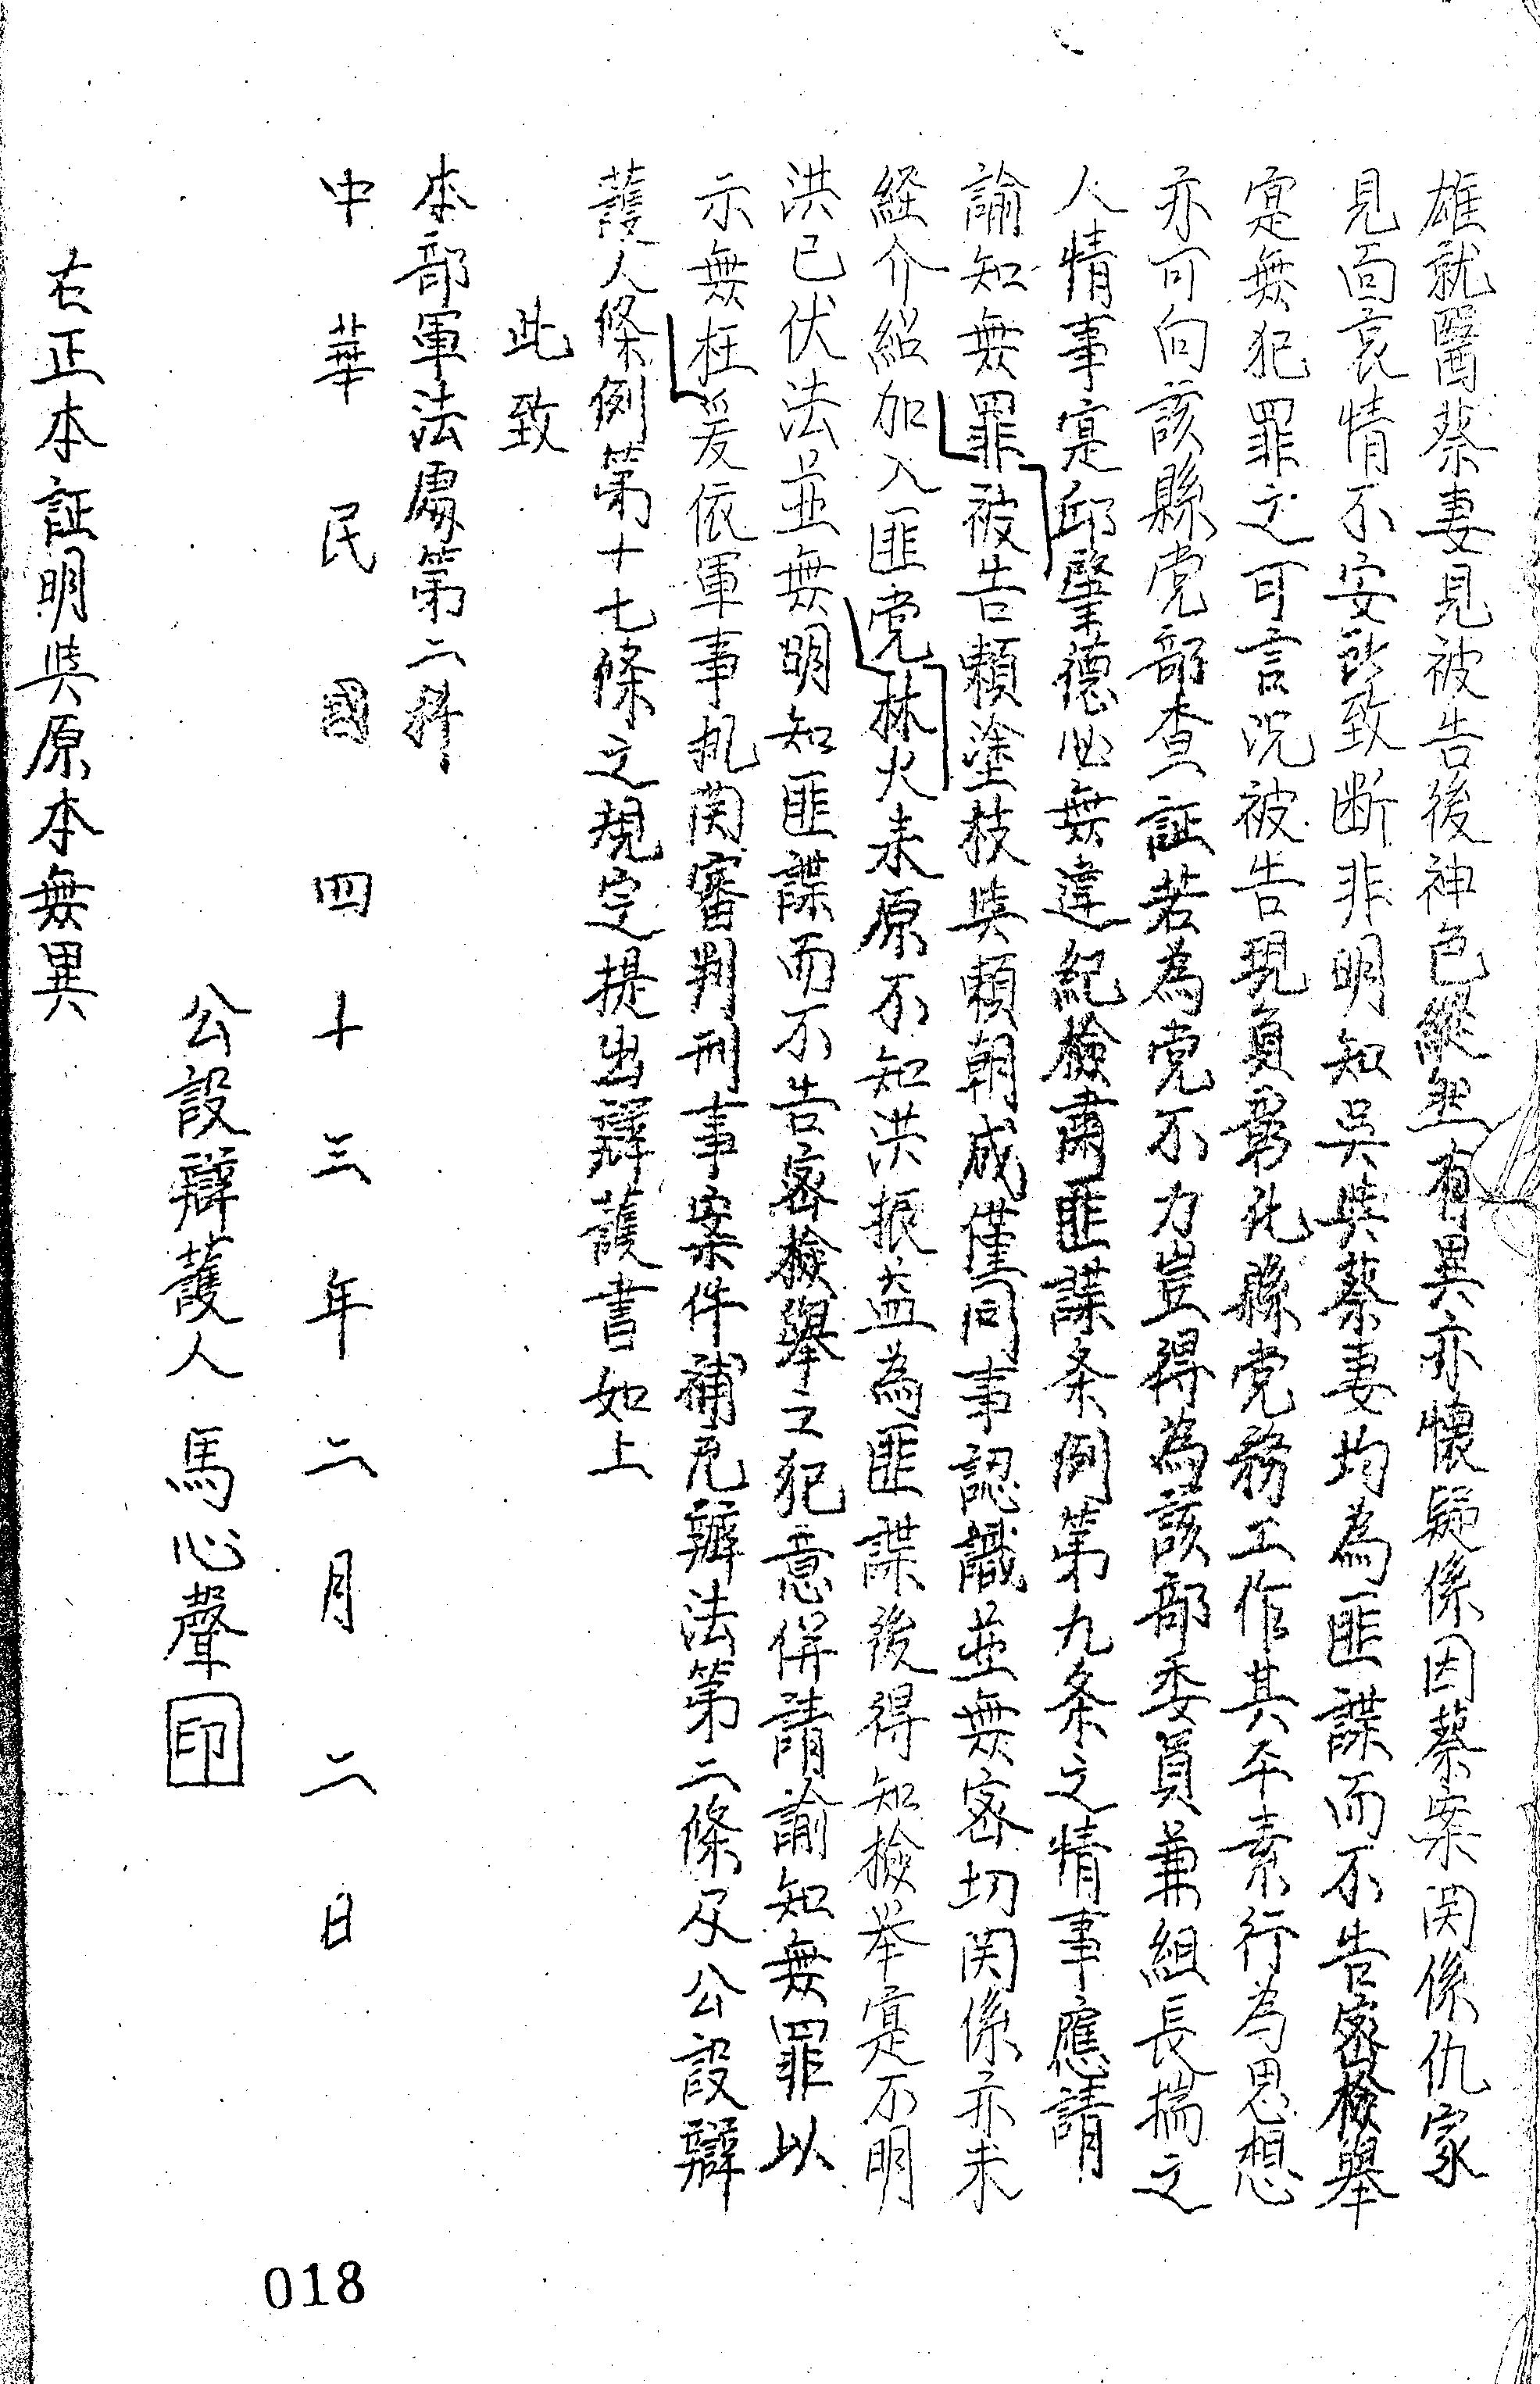 雄就醫蔡妻見被告後神色縱然有異亦懷疑係因蔡案関係仇家
見面哀情不安所致断非明知吳與蔡妻均為匪諜而不告密檢舉
寔無犯罪之可言況被告現負彰化縣党務工作其平素行為思想
亦可向該縣党部查証若為党不力豈得為該部委員兼組長揣之
人情事寔邱肇德必無違紀檢肅匪諜条例第九条之情事應請
諭知無罪被告賴塗枝與賴朝成僅同事認識並無密切関係亦未
経介紹加入匪党林火来原不知洪振益為匪諜後得知檢举寔不明
洪已伏法並無明知匪諜而不告密檢舉之犯意併請諭知無罪以
示無枉爰依軍事机関審判刑事案件補充辦法第二條及公設辯
護人條例第十七條之規定提出辯護書如上
此致
本部軍法處第二科
中華民國四十三年二月二日
公設辯護人馬心聲印
右正本証明與原本無異
018